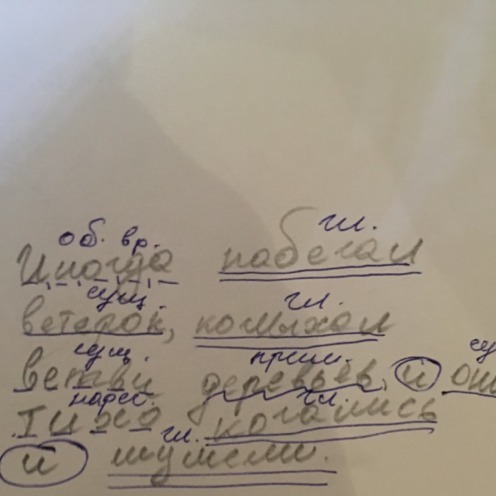 об. вр. гл.
Иногда набегал
сущ. гл.
ветерок, колыхал
сущ. прил. су
ветви деревьев, и они
нареч. гл.
Тихо качались
гл.
и шумели.